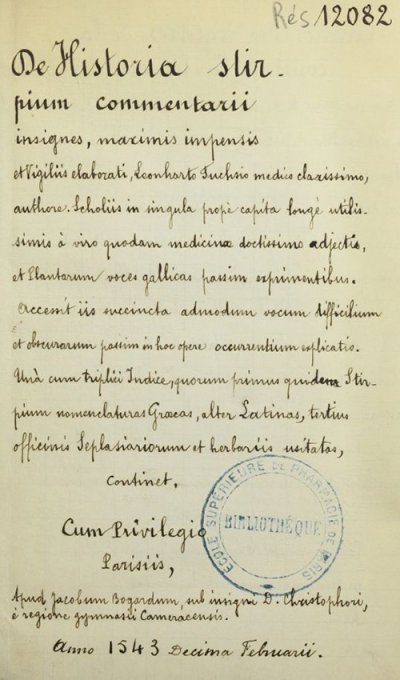 Rés 12082
De Historia stir-
pium commentarii
insignes, maximis impensis
et Vigiliis elaborati, Leonharto Fuchsio medico clarissimo,
authore. Scholiis in singula propè capita longè utilis-
simis à viro quodam medicinæ doctissimo adjectis,
et Plantarum voces gallicas passim exprimentibus.
Accessit iis succincta admodum vocum difficilium
et obscurarum passim in hoc opere occurrentium explicatio.
Unà cum triplici Indice, quorum primus quidem Stir-
pium nomenclaturas Græcas, alter Latinas, tertius
officinis Seplasiariorum et herbariis usitatas,
Continet.
Cum Privilegio
Parisiis,
Apud Jacobum Bogardum, sub insigni D. Christophori,
è regione gymnasii Cameracensis.
Anno 1543 Decima Februarii.
ECOLE SUPÉRIEURE DE PHARMACIE DE PARIS
BIBLIOTHÉQUE